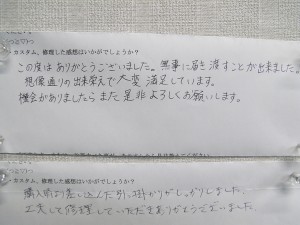 カスタム、修理した感想はいかがでしょうか？
この度はありがとうございました。無事に届き渡すことが出来ました。
想像通りの出来栄えで大変満足しています。
機会がありましたらまた是非よろしくお願いします。
カスタム、修理した感想はいかがでしょうか？
購入時より差し込んだ引っ掛かりがしっかりしました。
工夫して修理していただきありがとうございました。